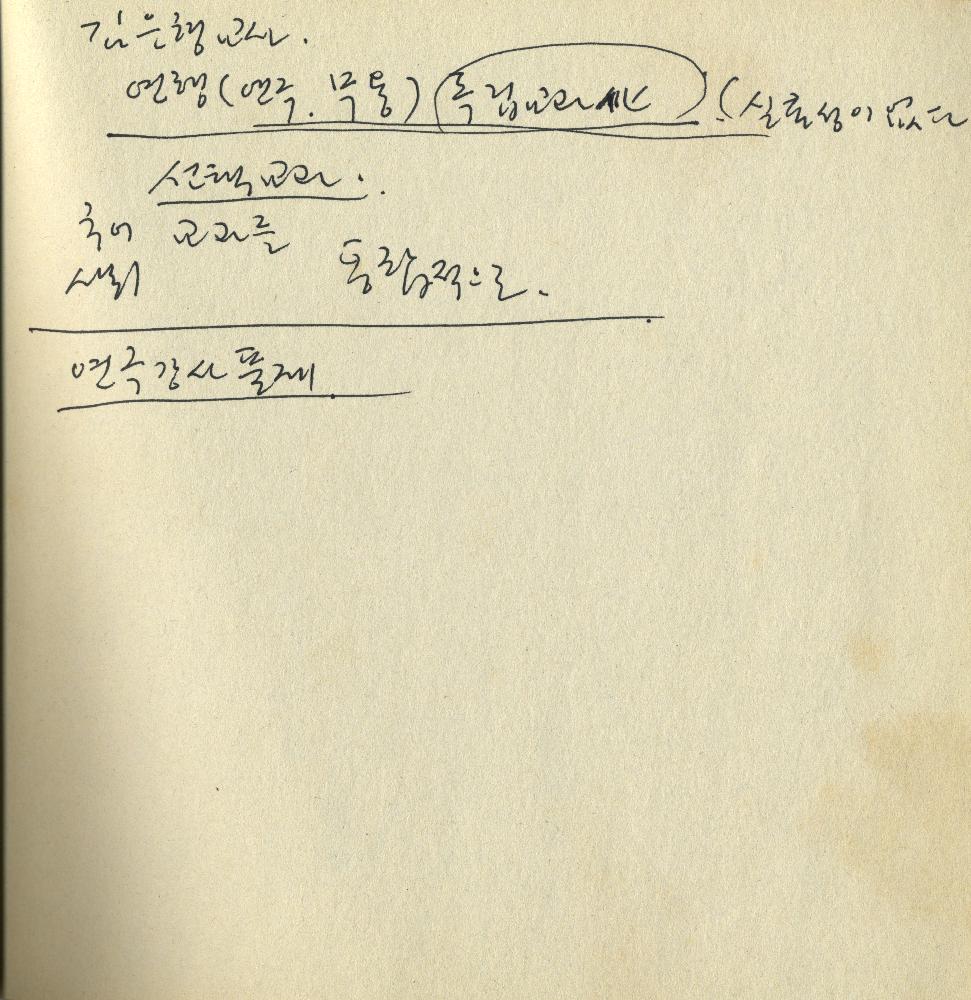 김은형 교사.
연행(연극. 무용) 독립교과 (실효성이 없다
선택교과.
국어 교과를
사회 통합적으로.
연극강사풀제